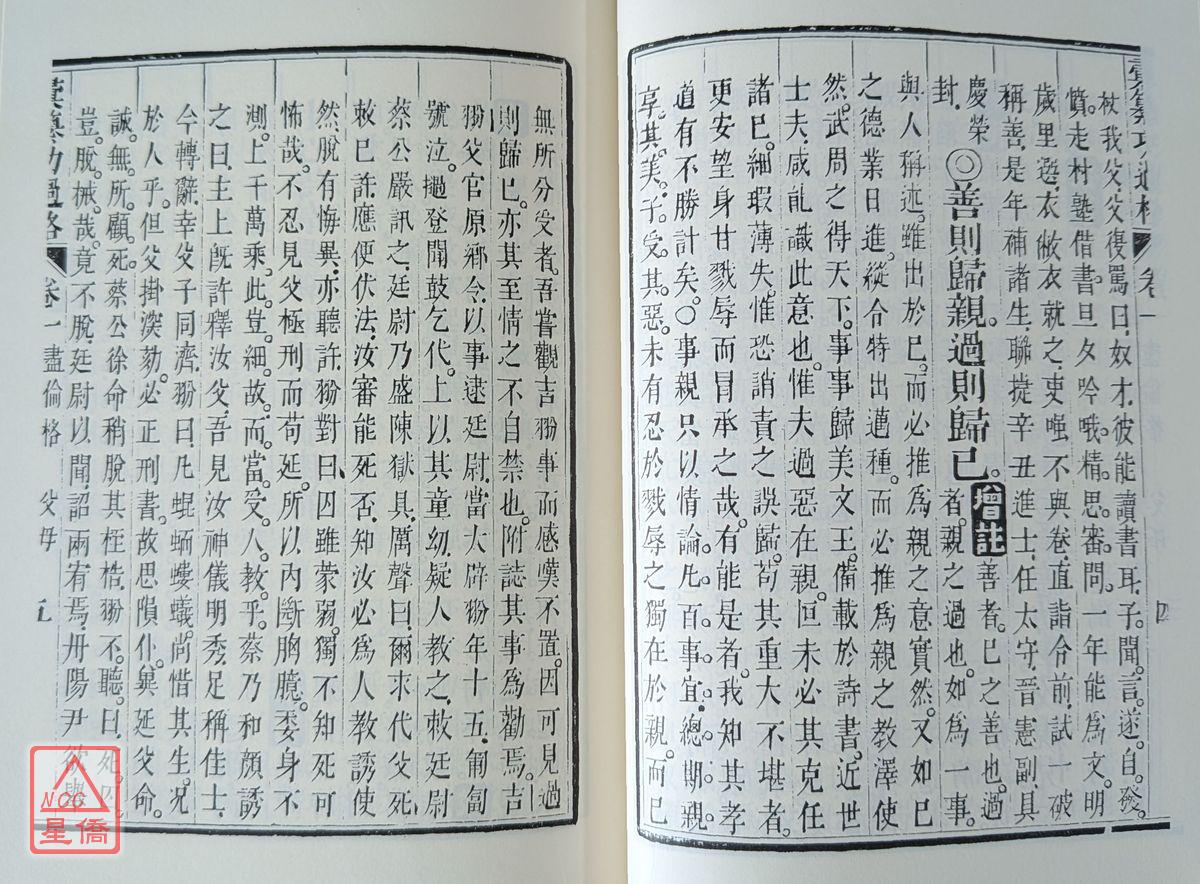 彙纂功過格 卷一 四
杖我父。父復罵曰。奴才。彼能讀書耳。子聞。言。遂。自。發。
憤。走村塾借書。旦夕吟哦。精。思。審。問。一年能爲文。明
歲里遊。衣敝衣就之。吏嗤不與卷。直詣令前。試一破
稱善。是年補諸生。聯捷辛丑進士。任太守。晉憲副。具
慶榮封。
◎善則歸親。過則歸己。增註善者。己之善也。過者。親之過也。如爲一事。
與人稱述。雖出於己。而必推爲親之意實然。又如己
之德業日進。縱令特出邁種。而必推爲親之教澤使
然。武周之得天下。事事歸美文王。備載於詩書。近世
士夫。咸能識此意也。惟夫過惡在親。回未必其克任
諸己。細瑕薄失。惟恐誚責之誤歸。苟其重大不堪者。
更安望身甘戮辱而冒承之哉。有能是者。我知其孝
道有不勝計矣。〇事親只以情論。凡百事宜。總期親
享。其。美。子。受。其。惡。未有忍於戮辱之獨在於親。而己
無所分受者。吾嘗觀吉翂事而感嘆不置。因可見過
則歸己。亦其至情之不自禁也。附誌其事爲勸焉。吉
翂父官原鄉令。以事逮廷尉。當大辟。翂年十五。匍匐
號泣。撾登聞鼓乞代。上以其童幼。疑人教之。敕廷尉
蔡公嚴訊之。廷尉乃盛陳獄具。厲聲曰。爾來代父死。
敕已許。應便伏法。汝審能死否。知汝必爲人教誘使
然。脫有悔異。亦聽許。翂對曰。囚雖蒙弱。獨不知死可
怖哉。不忍見父極刑而苟延。所以內斷胸臆。委身不
測。上千萬乘。此。豈。細。故。而。當。受。人。教。乎。蔡乃和顏誘
之曰。主上既許釋汝父。吾見汝神儀明秀。足稱佳士。
今轉辭。幸父子同濟。翂曰。凡蜫蝡螻蟻。尚惜其生。況
於人乎。但父掛深劾。必正刑書。故思隕仆。冀延父命。
誠。無。所。顧。死。蔡公徐命稍脫其桎梏。翂不。聽。曰。死。囚。
豈。脫。械。哉。竟不脫。廷尉以聞。詔兩宥焉。丹陽尹欲舉
彙纂功過格 卷一 盡倫格 父母 五
NCC
星僑